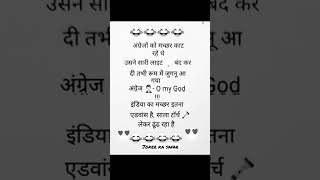 अंग्रेजो को मच्छर काट
रहे थे
उसने सारी लाइट , बंद कर
दी तभी रूम में जुगनू आ
गया
अंग्रेज 👨🏻‍⚕️ - O my God
!!!
इंडिया का मच्छर इतना
एडवांस है, साला टॉर्च 🔦
लेकर ढूंढ रहा है
JOKER KA SAFAR